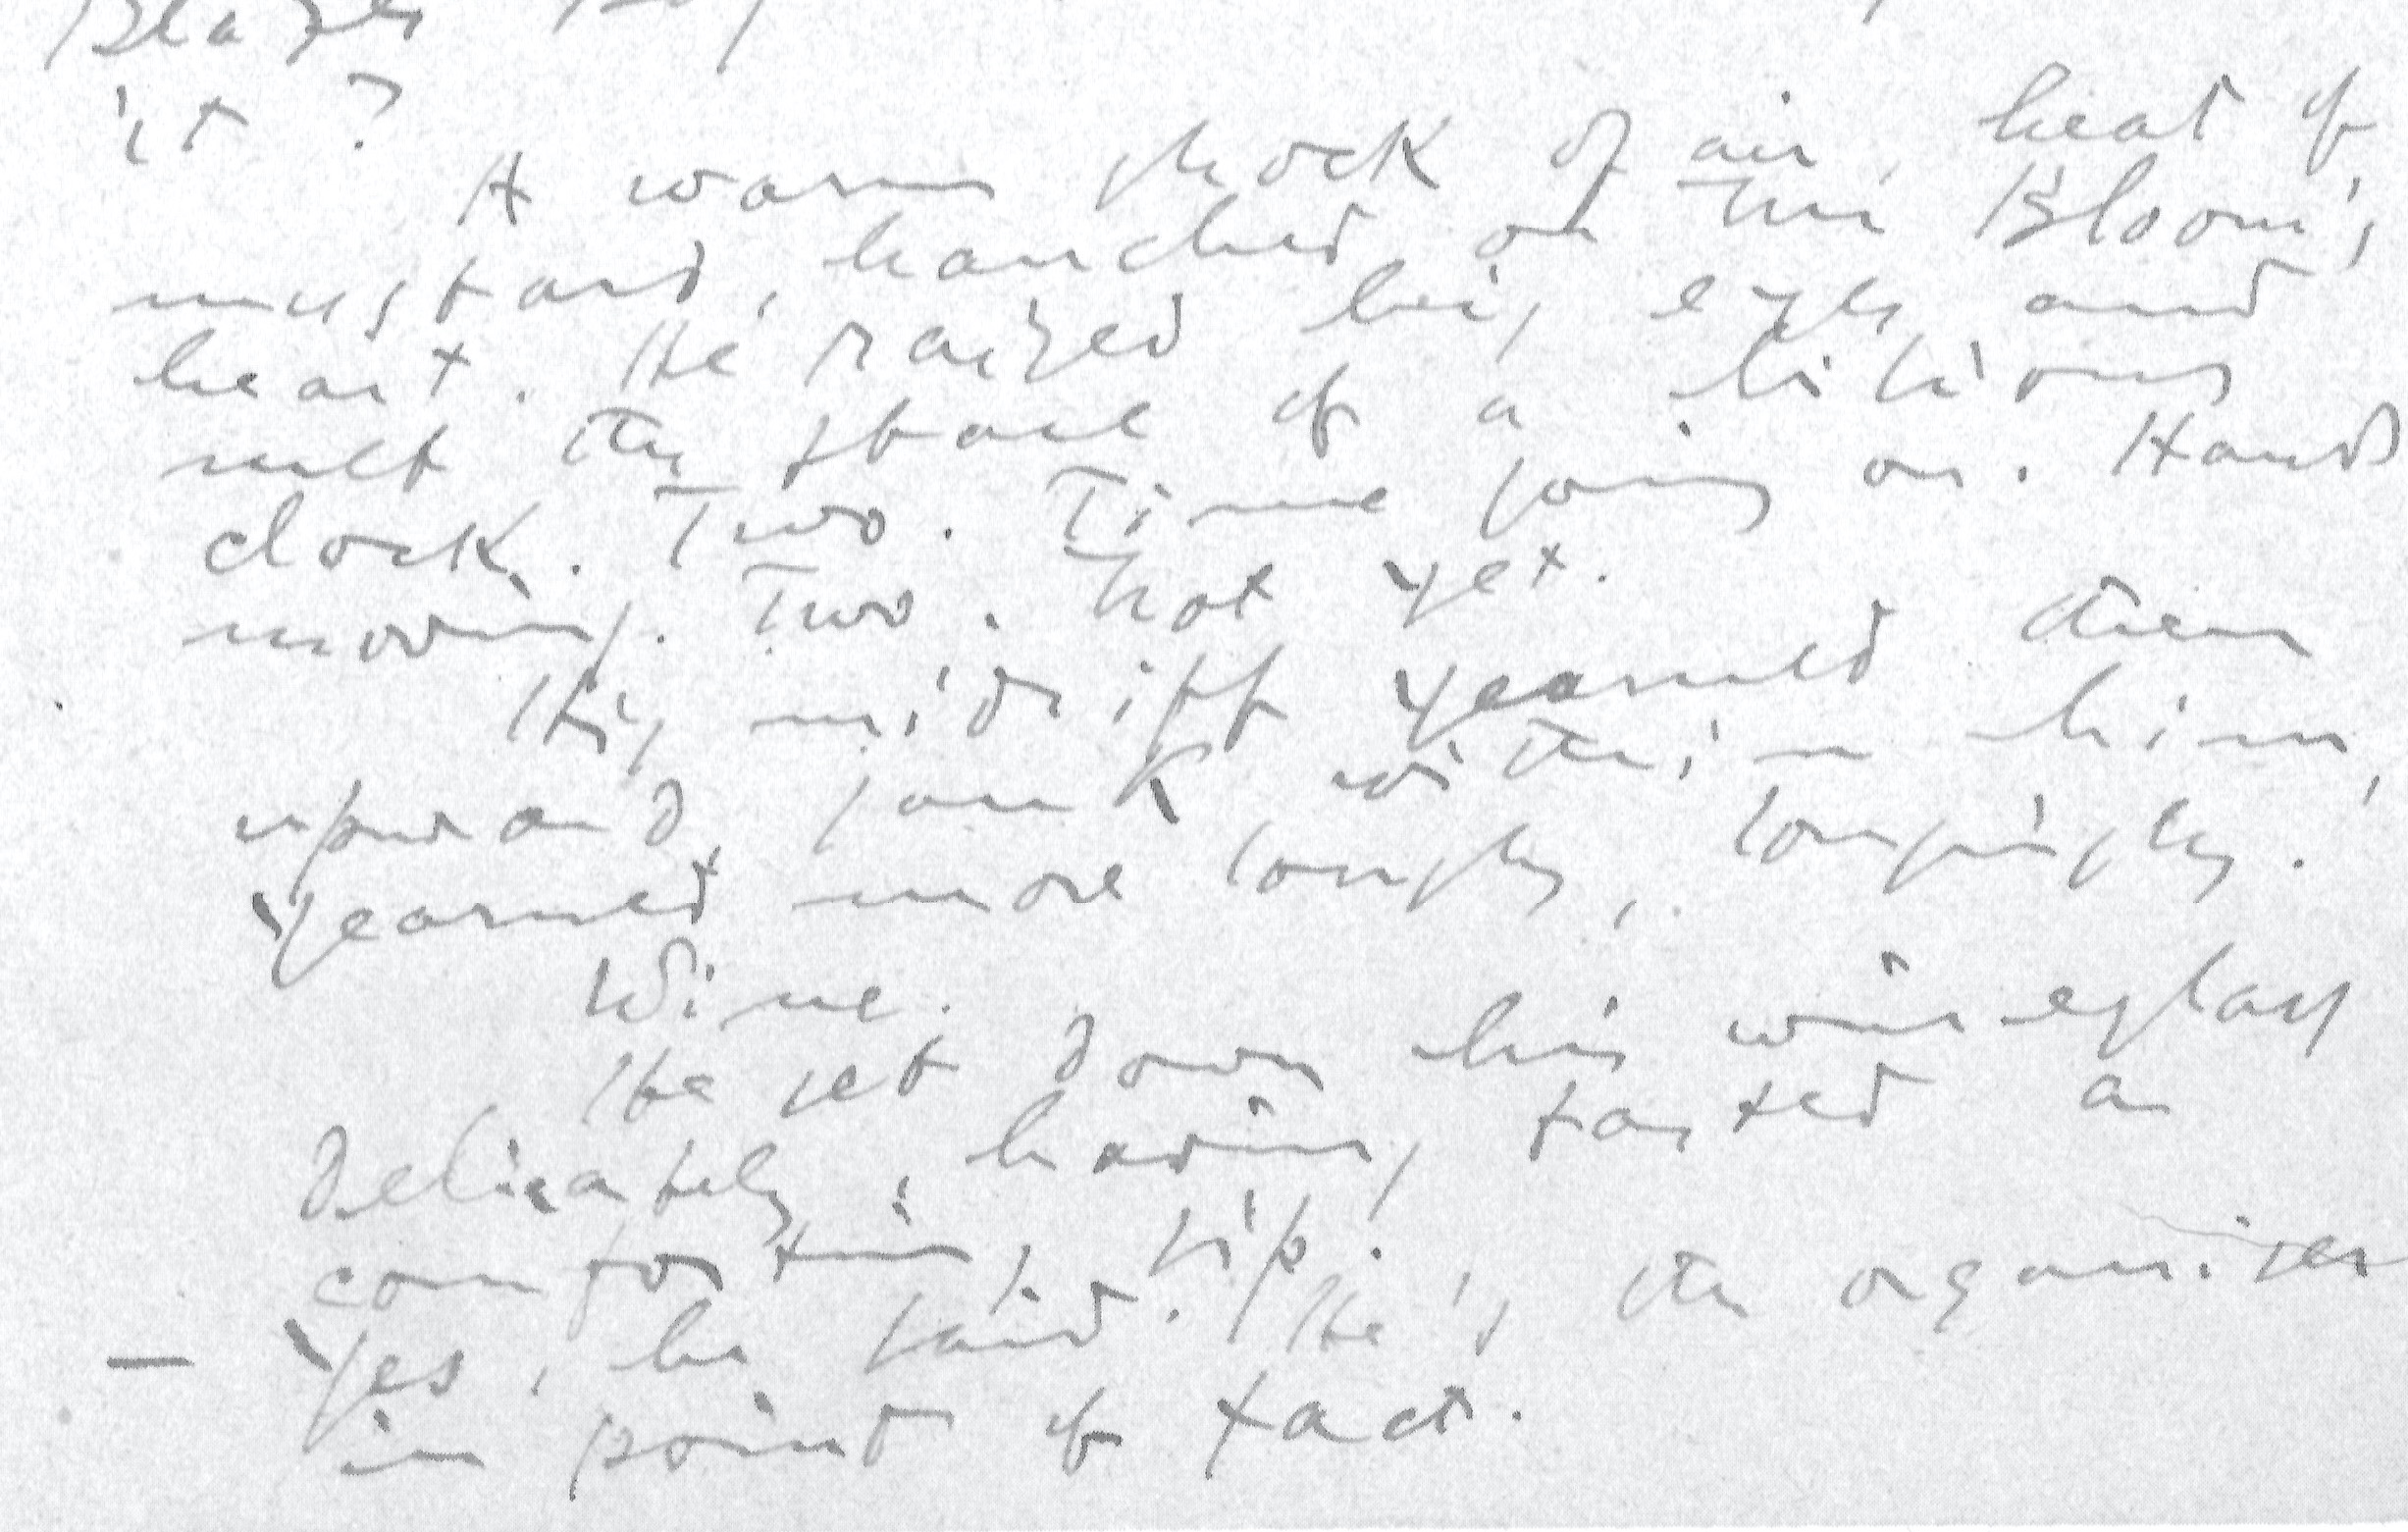 Blazes
it?
A warm shock of air, heat of
mustard, hanched on Mr Bloom's
heart. He raised his eyes and
met the stare of a bilious
clock. Two. Time going on. Hands
moving. Two. Not yet.
His midriff yearned then
upward, sank within him,
yearned more longly, longingly.
Wine.
He set down his wineglass
delicately, having tasted a
comforting sip.
— Yes, he said. He's the organiser
in point of fact.